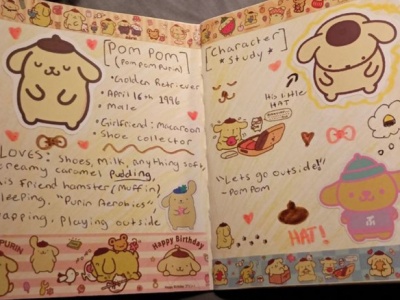 [POM POM]
(PomPomPurin)
• Golden Retriever
• April 16th 1996
• Male
• Girlfriend: Macaroon
• Shoe collector
LOVES: Shoes, Milk, anything soft,
creamy caramel Pudding,
his Friend hamster (Muffin)
sleeping, "Purin Aerobics"
napping, Playing outside
PURIN
Happy Birthday
[Character
*Study*]
His little
HAT
"Lets go outside!"
~PomPom
HAT!